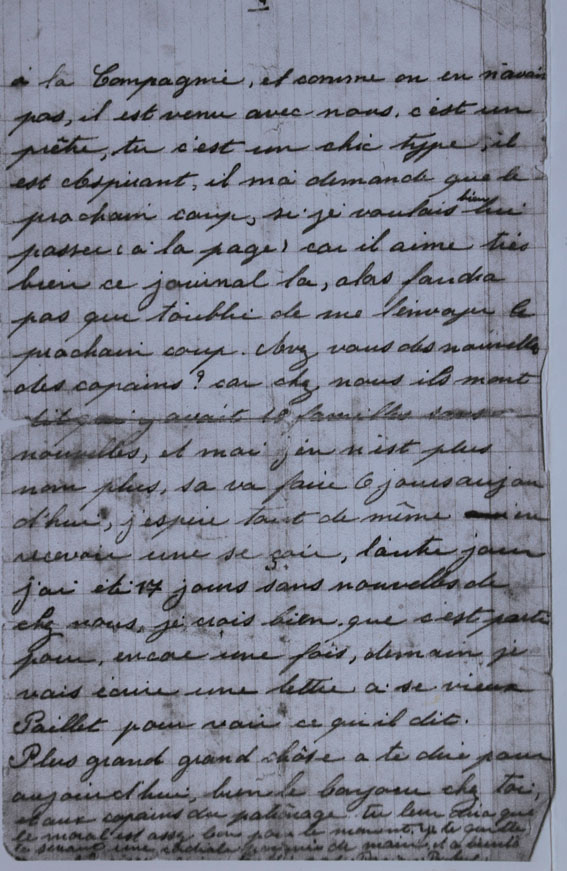 a la Compagnie, et comme on en n'avai
pas, il est venu avec nous. c'est un
prêtre, tu c'est un chic type, il
est Aspirant, il ma demande que le
prochain coup, si je voulais bien lui
passer (a la page) car il aime très
bien ce journal la, alors faudra
pas que t'oublie de me l'envoyer le
prochain coup. Avez vous des nouvelles
des copains? car chez nous ils mont
dit qui y avait 18 familles sans
nouvelles, et moi j'en n'est plus
non plus, sa va faire 6 jours aujou
d'hui, j'espère tout de même en
recevoir une se soir, l'autre jour
j'ai été 17 jours sans nouvelles de
chez vous, je crois bien que c'est parti
pour, encore une fois, demain je
vais écrire une lettre a se vieux
Paillet pour voir ce qu'il dit.
Plus grand grand chôse a te dire pour
aujourd'hui, bien le bonjour chez toi,
et aux copains du patênage tu leur dira que
le moral est assez bon pour le moment, je te quitte
te serrant une cordiale poignée de main, et a bientôt